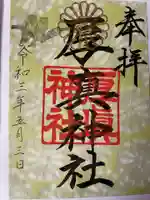 奉拝
厚真神社
厚真神社
令和三年五月三日